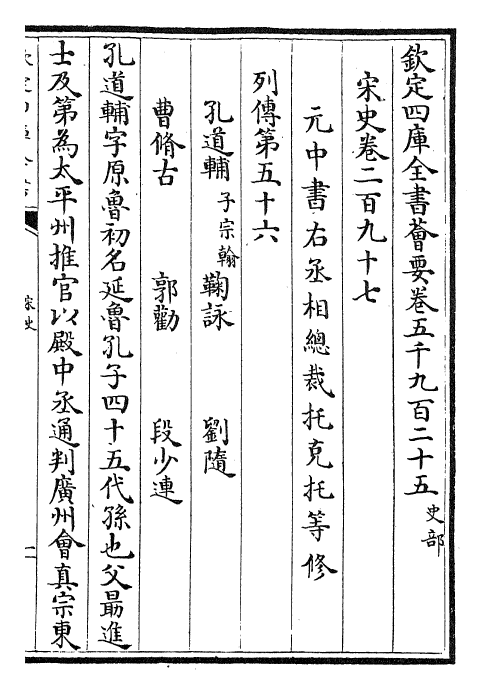 欽定四庫全書薈要卷五千九百二十五 史部
宋史卷二百九十七
元中書右丞相總裁托克托等修
列傳第五十六
孔道輔 子宗翰 鞠詠 劉隨
曹脩古 郭勸 段少連
孔道輔字原魯初名延魯孔子四十五代孫也父勗進
士及第為太平州推官以殿中丞通判廣州會真宗東
宋史